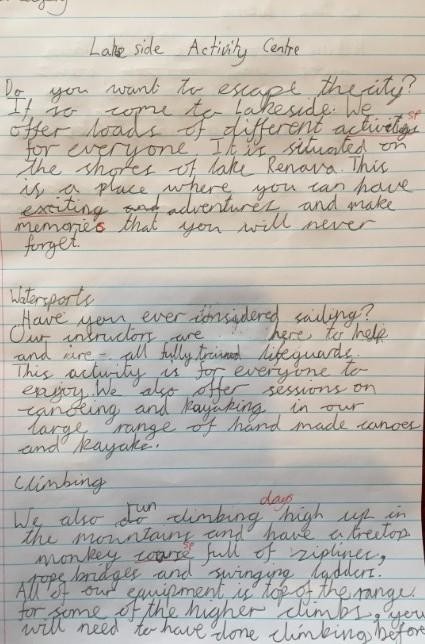 Lakeside Activity Centre
Do you want to escape the city?
If so come to Lakeside. We
sp
offer loads of different activitys
for everyone. It is situated on
the shores of lake Renava. This
is a place where you can have
exciting and adventures and make
memories that you will never
forget.
Watersports
Have you ever considered sailing?
Our insructors are here to help
and are all fully trained lifeguards.
This activity is for everyone to
enjoy. We also offer sessions on
canoeing and kayaking in our
large range of hand made canoes
and kayaks.
Climbing
run days
We also do climbing high up in
the mountains and have a treetop
sp
monkey coarse full of ziplines,
rope bridges and swinging ladders.
All of our equipment is top of the range.
For some of the higher climbs, you
will need to have done climbing before